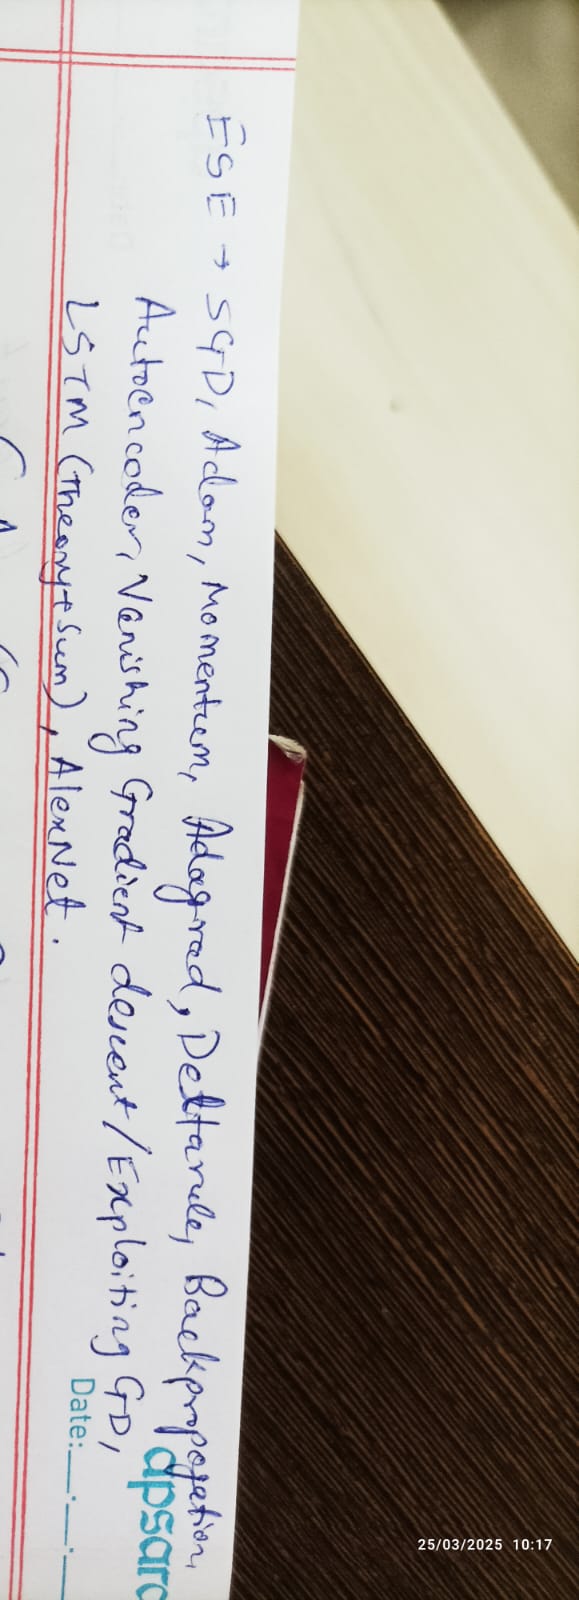 25/03/2025 10:17
ESE → SGD, Adam, Momentum, Adagrad, Deltarule, Backpropogation,
apsara
Autoencoder, Vanishing Gradient descent/Exploiting GD,
Date:__.__.__
LSTM (Theory+Sum), AlexNet.